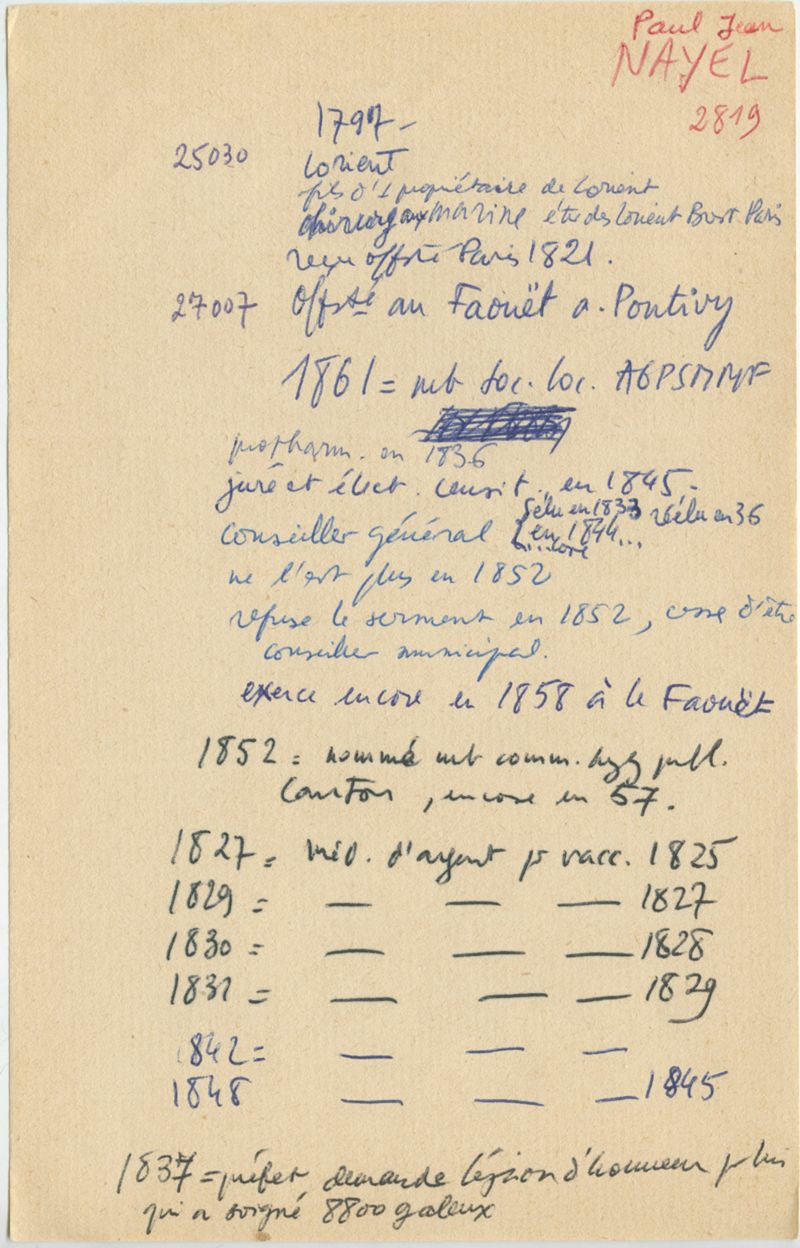 Paul Jean
NAYEL
2819
1797 -
25030 Lorient
fils d'1 propriétaire de Lorient
chirurg aux marine études Lorient Brest Paris
reçu offsté Paris 1821.
27007 Offsté au Faouët a. Pontivy
1861 = mb soc. loc. AGPSMMF
propharm. en 1836
juré et élect. censit. en 1845 -
conseiller général élu en 1833 réélu en 36
en 1844...
encore
ne l'est plus en 1852
refuse le serment en 1852, cesse d'être
conseiller municipal.
exerce encore en 1858 à le Faouët
1852 = nommé mb comm. hyg publ.
Canton, encore en 57.
1827 = Méd. d'argent pr vacc. 1825
1829 = — — — 1827
1830 = — — — 1828
1831 = — — — 1829
1842 = — — —
1848 — — — 1845
1837 = préfet demande légion d'honneur pr lui
qui a soigné 8800 galeux